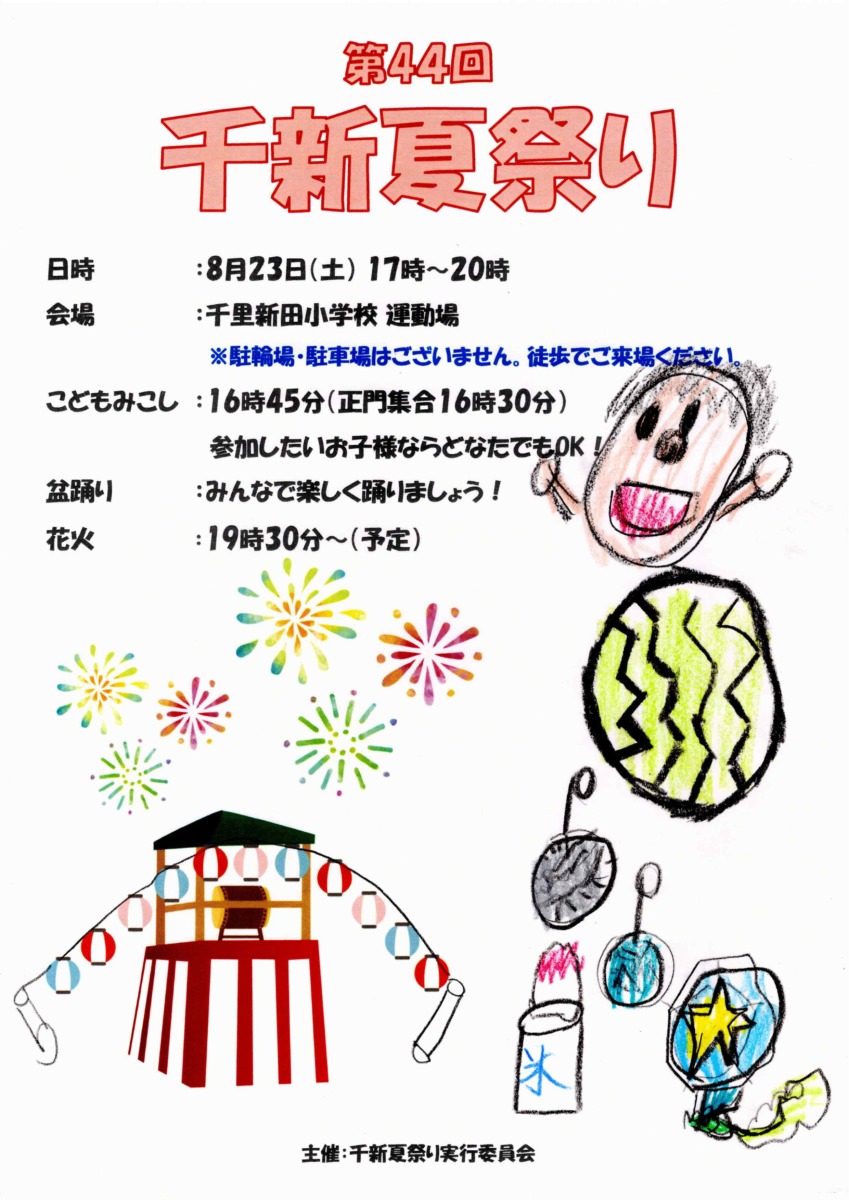 第44回
千新夏祭り
日時 :8月23日(土) 17時~20時
会場 :千里新田小学校 運動場
※駐輪場・駐車場はございません。徒歩でご来場ください。
こどもみこし :16時45分(正門集合16時30分)
参加したいお子様ならどなたでもOK!
盆踊り :みんなで楽しく踊りましょう!
花火 :19時30分~(予定)
氷
主催:千新夏祭り実行委員会